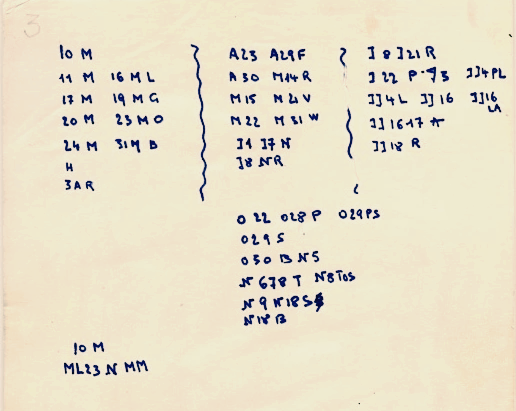 3
10 M
11 M 16 M L
17 M 19 M G
20 M 23 M O
24 M 31 M B
H
3 A R
A23 A29F
A 30 M14 R
M15 M 21 V
M 22 M 31 W
J1 J7 N
J8 NR
J 8 J21 R
J 22 P JJ4PL
JJ4 L JJ 16 JJ16
LA
JJ 16 17
JJ18 R
O 22 O28 P O29PS
O29 S
O30 B N5
N 678 T N8TOS
N 9 N18S
N18 B
10 M
ML23 N MM